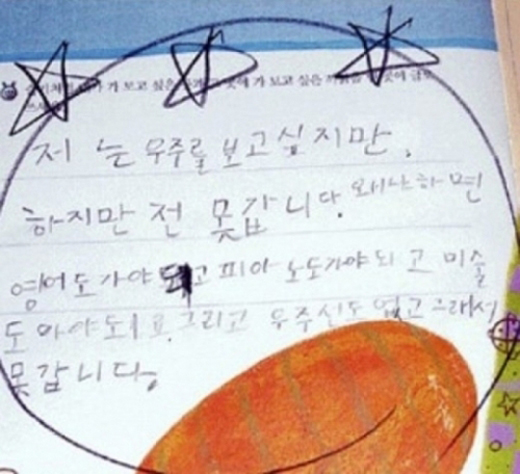 가 보고 싶은
에 가 보고 싶은
저 는 우주를 보고싶 지만,
하지만 전 못갑니다. 왜냐하면
영어도가야되고 피아노도가야되고 미술
도 와야되요. 그리고 우주선도 없고 그래서
못갑니다.